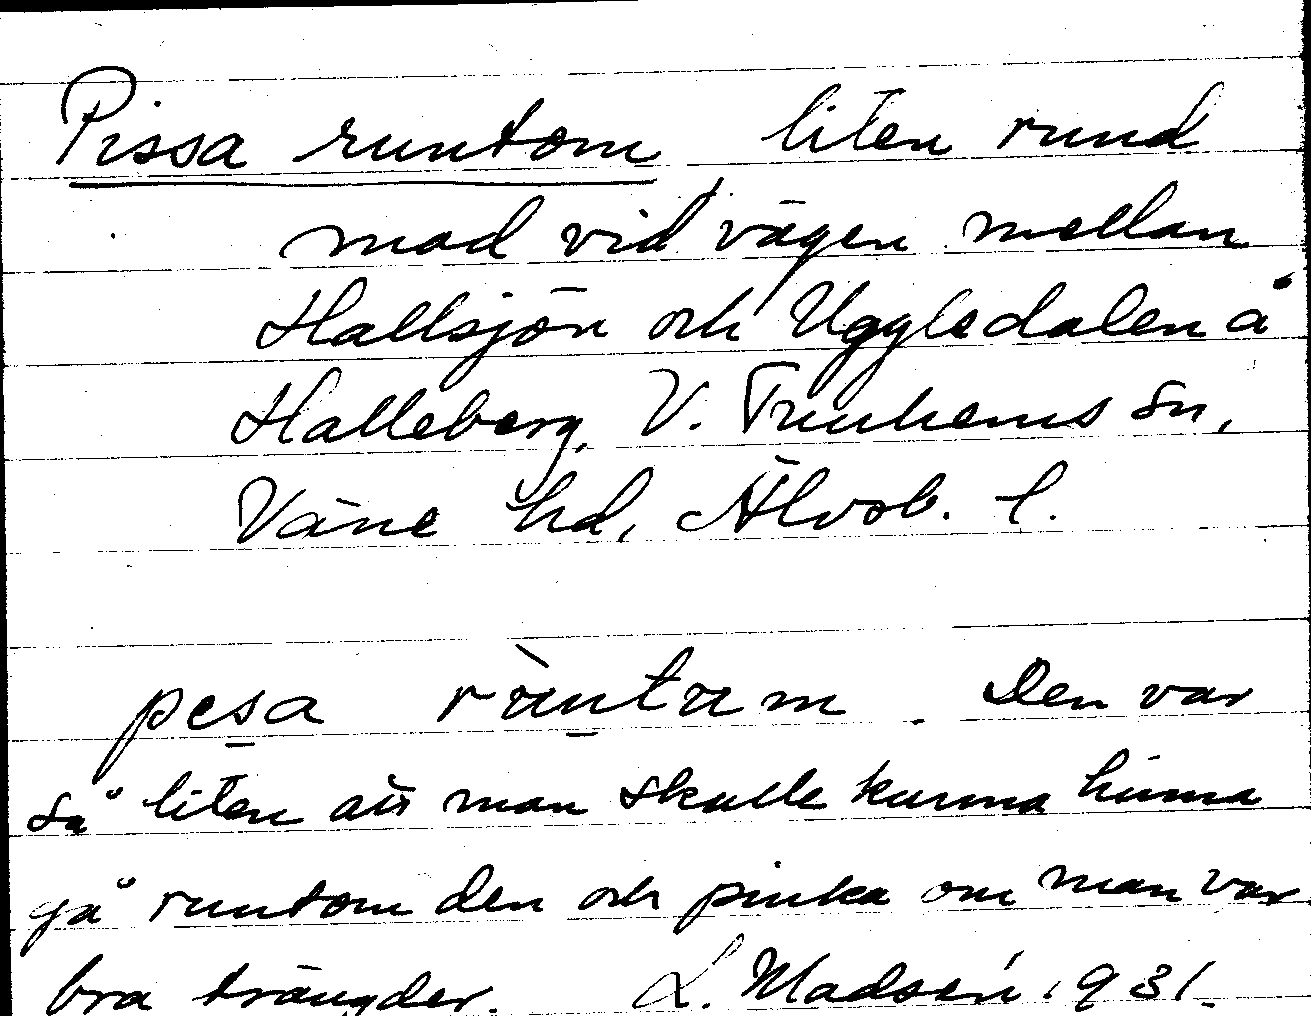 Pissa runtom liten rund
mad vid vägen mellan
Hallsjön och Uggledalen å
Halleberg, V. Tunhems sn,
Väne hd, Älvsb. l.
pesa ràntam. Den var
så liten att man skulle kunna hinna
gå runtom den och pinka om man var
bra trängder. L. Madsén 1931.